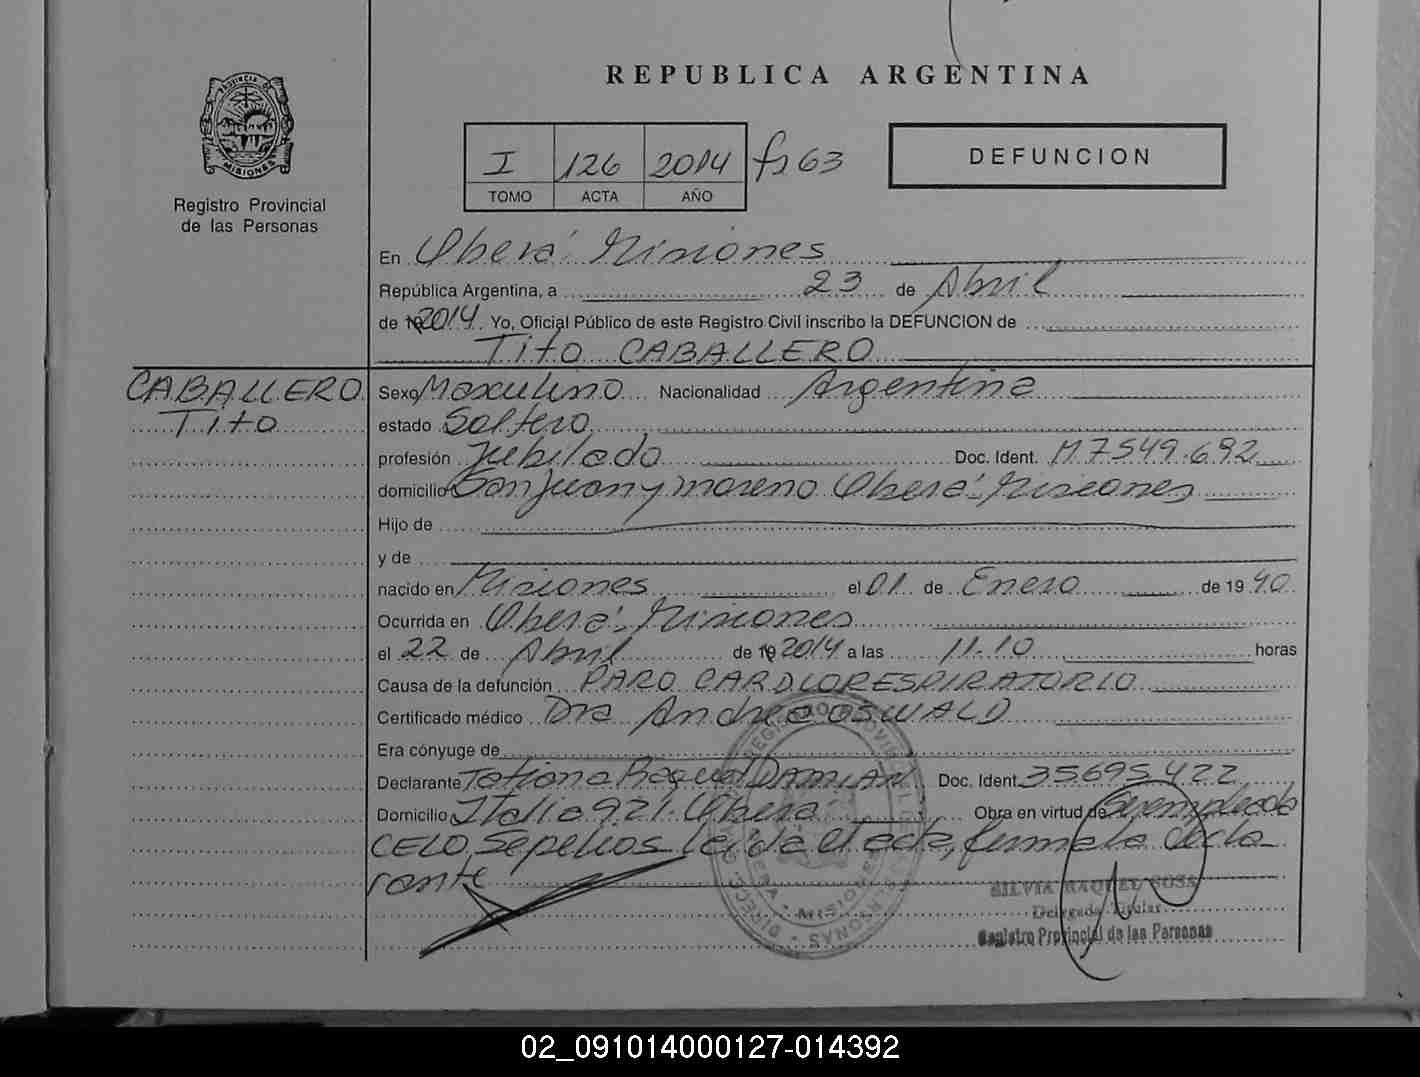 PROVINCIA DE
MISIONES
Registro Provincial
de las Personas
REPUBLICA ARGENTINA
I 126 2014 fs 63
TOMO ACTA AÑO
DEFUNCION
En Oberá Misiones
República Argentina, a 23 de Abril
de 192014 Yo, Oficial Público de este Registro Civil inscribo la DEFUNCION de
Tito CABALLERO
CABALLERO
Tito
Sexo Masculino Nacionalidad Argentina
estado Soltero
profesión Jubilado Doc. Ident. M7549.692
domicilio San Juan y moreno Oberá Misiones
Hijo de
y de
nacido en Misiones el 01 de Enero de 1940
Ocurrida en Oberá, Misiones
el 22 de Abril de 192014 a las 11.10 horas
Causa de la defunción PARO CARDIORESPIRATORIO
Certificado médico Dra Andrea OSWALD
Era cónyuge de
Declarante Tatiana Raquel DAMIAN Doc. Ident. 35695422
Domicilio Italia 921. Oberá Obra en virtud de Ser empleada
CELO Sepelios Leída el acta, firma la decla
rante
SILVIA RAQUEL SOSA
Delegada Titular
Registro Provincial de las Personas
02_091014000127-014392